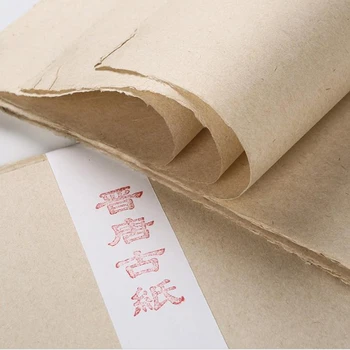 晋唐古紙